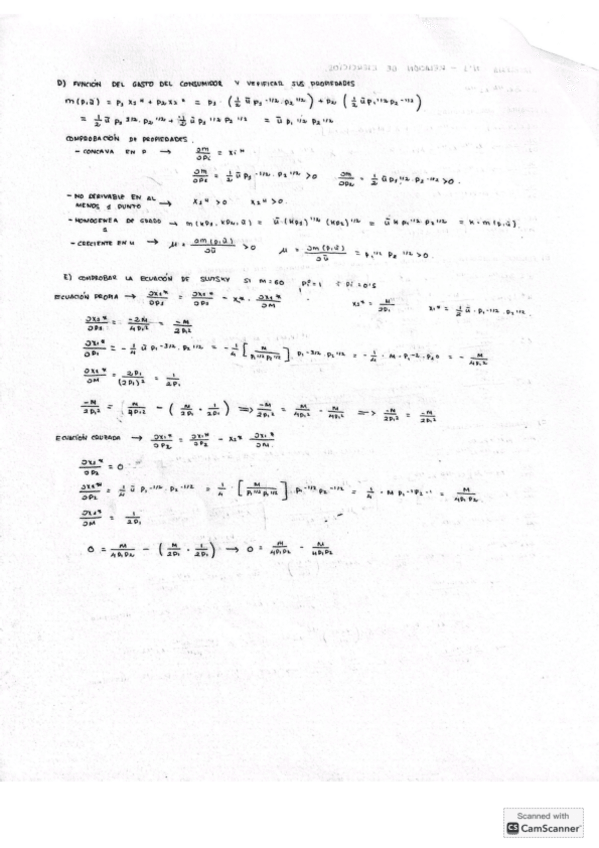 D) FUNCIÓN DEL GASTO DEL CONSUMIDOR Y VERIFICAR SUS PROPIEDADES
m(p,ū) = p₁ x₁* + p₂ x₂* = p₁ · (1/2 ū p₁^-1/2 · p₂^1/2) + p₂ (1/2 ū p₁^1/2 p₂^-1/2)
= 1/2 ū p₁^1/2 · p₂^1/2 + 1/2 ū p₁^1/2 p₂^1/2 = ū p₁^1/2 p₂^1/2
COMPROBACIÓN DE PROPIEDADES.
- CONCAVA EN P → ∂m/∂pi = xi*
∂m/∂p₁ = 1/2 ū p₁^-1/2 · p₂^1/2 > 0 ∂m/∂p₂ = 1/2 ū p₁^1/2 · p₂^-1/2 > 0
- NO DERIVABLE EN AL
MENOS 1 PUNTO → x₁* > 0 x₂* > 0
- HOMOGENEA DE GRADO → m(kp₁, kp₂, ū) = ū · (kp₁)^1/2 (kp₂)^1/2 = ū k p₁^1/2 p₂^1/2 = k · m(p,ū).
- CRECIENTE EN U → μ = ∂m(p,ū)/∂ū > 0 μ = ∂m(p,ū)/∂ū = p₁^1/2 p₂^1/2 > 0.
E) COMPROBAR LA ECUACIÓN DE SLUTSKY SI M=60 P =1 P =0'5
ECUACIÓN PROPIA → ∂x₁*/∂p₁ = ∂x₁*/∂p₁ - x₁* · ∂x₁*/∂M x₁* = M/2p₁ x₁* = 1/2 ū · p₁^-1/2 · p₂^1/2
∂x₁*/∂p₁ = -2M/4p₁² = -M/2p₁²
∂x₁*/∂p₁ = -1/4 ū p₁^-3/2 · p₂^1/2 = -1/4 [M/p₁^1/2 p₂^1/2] · p₁^-3/2 · p₂^1/2 = -1/4 · M · p₁^-2 · p₂^0 = -M/4p₁²
∂x₁*/∂M = 2p₁/(2p₁)² = 1/2p₁
-M/2p₁² = M/4p₁² - (M/2p₁ · 1/2p₁) ⇒ -M/2p₁² = M/4p₁² - M/4p₁² ⇒ -M/2p₁² = -M/2p₁²
ECUACIÓN CRUZADA → ∂x₁*/∂p₂ = ∂x₁*/∂p₂ - x₂* ∂x₁*/∂M
∂x₁*/∂p₂ = 0
∂x₁*/∂p₂ = 1/4 ū p₁^-1/2 · p₂^-1/2 = 1/4 · [M/p₁^1/2 p₂^1/2] · p₁^-1/2 p₂^-1/2 = 1/4 · M p₁^-1 p₂^-1 = M/4p₁p₂
∂x₁*/∂M = 1/2p₁
0 = M/4p₁p₂ - (M/2p₁ · 1/2p₁) → 0 = M/4p₁p₂ - M/4p₁p₂
Scanned with
CS CamScanner